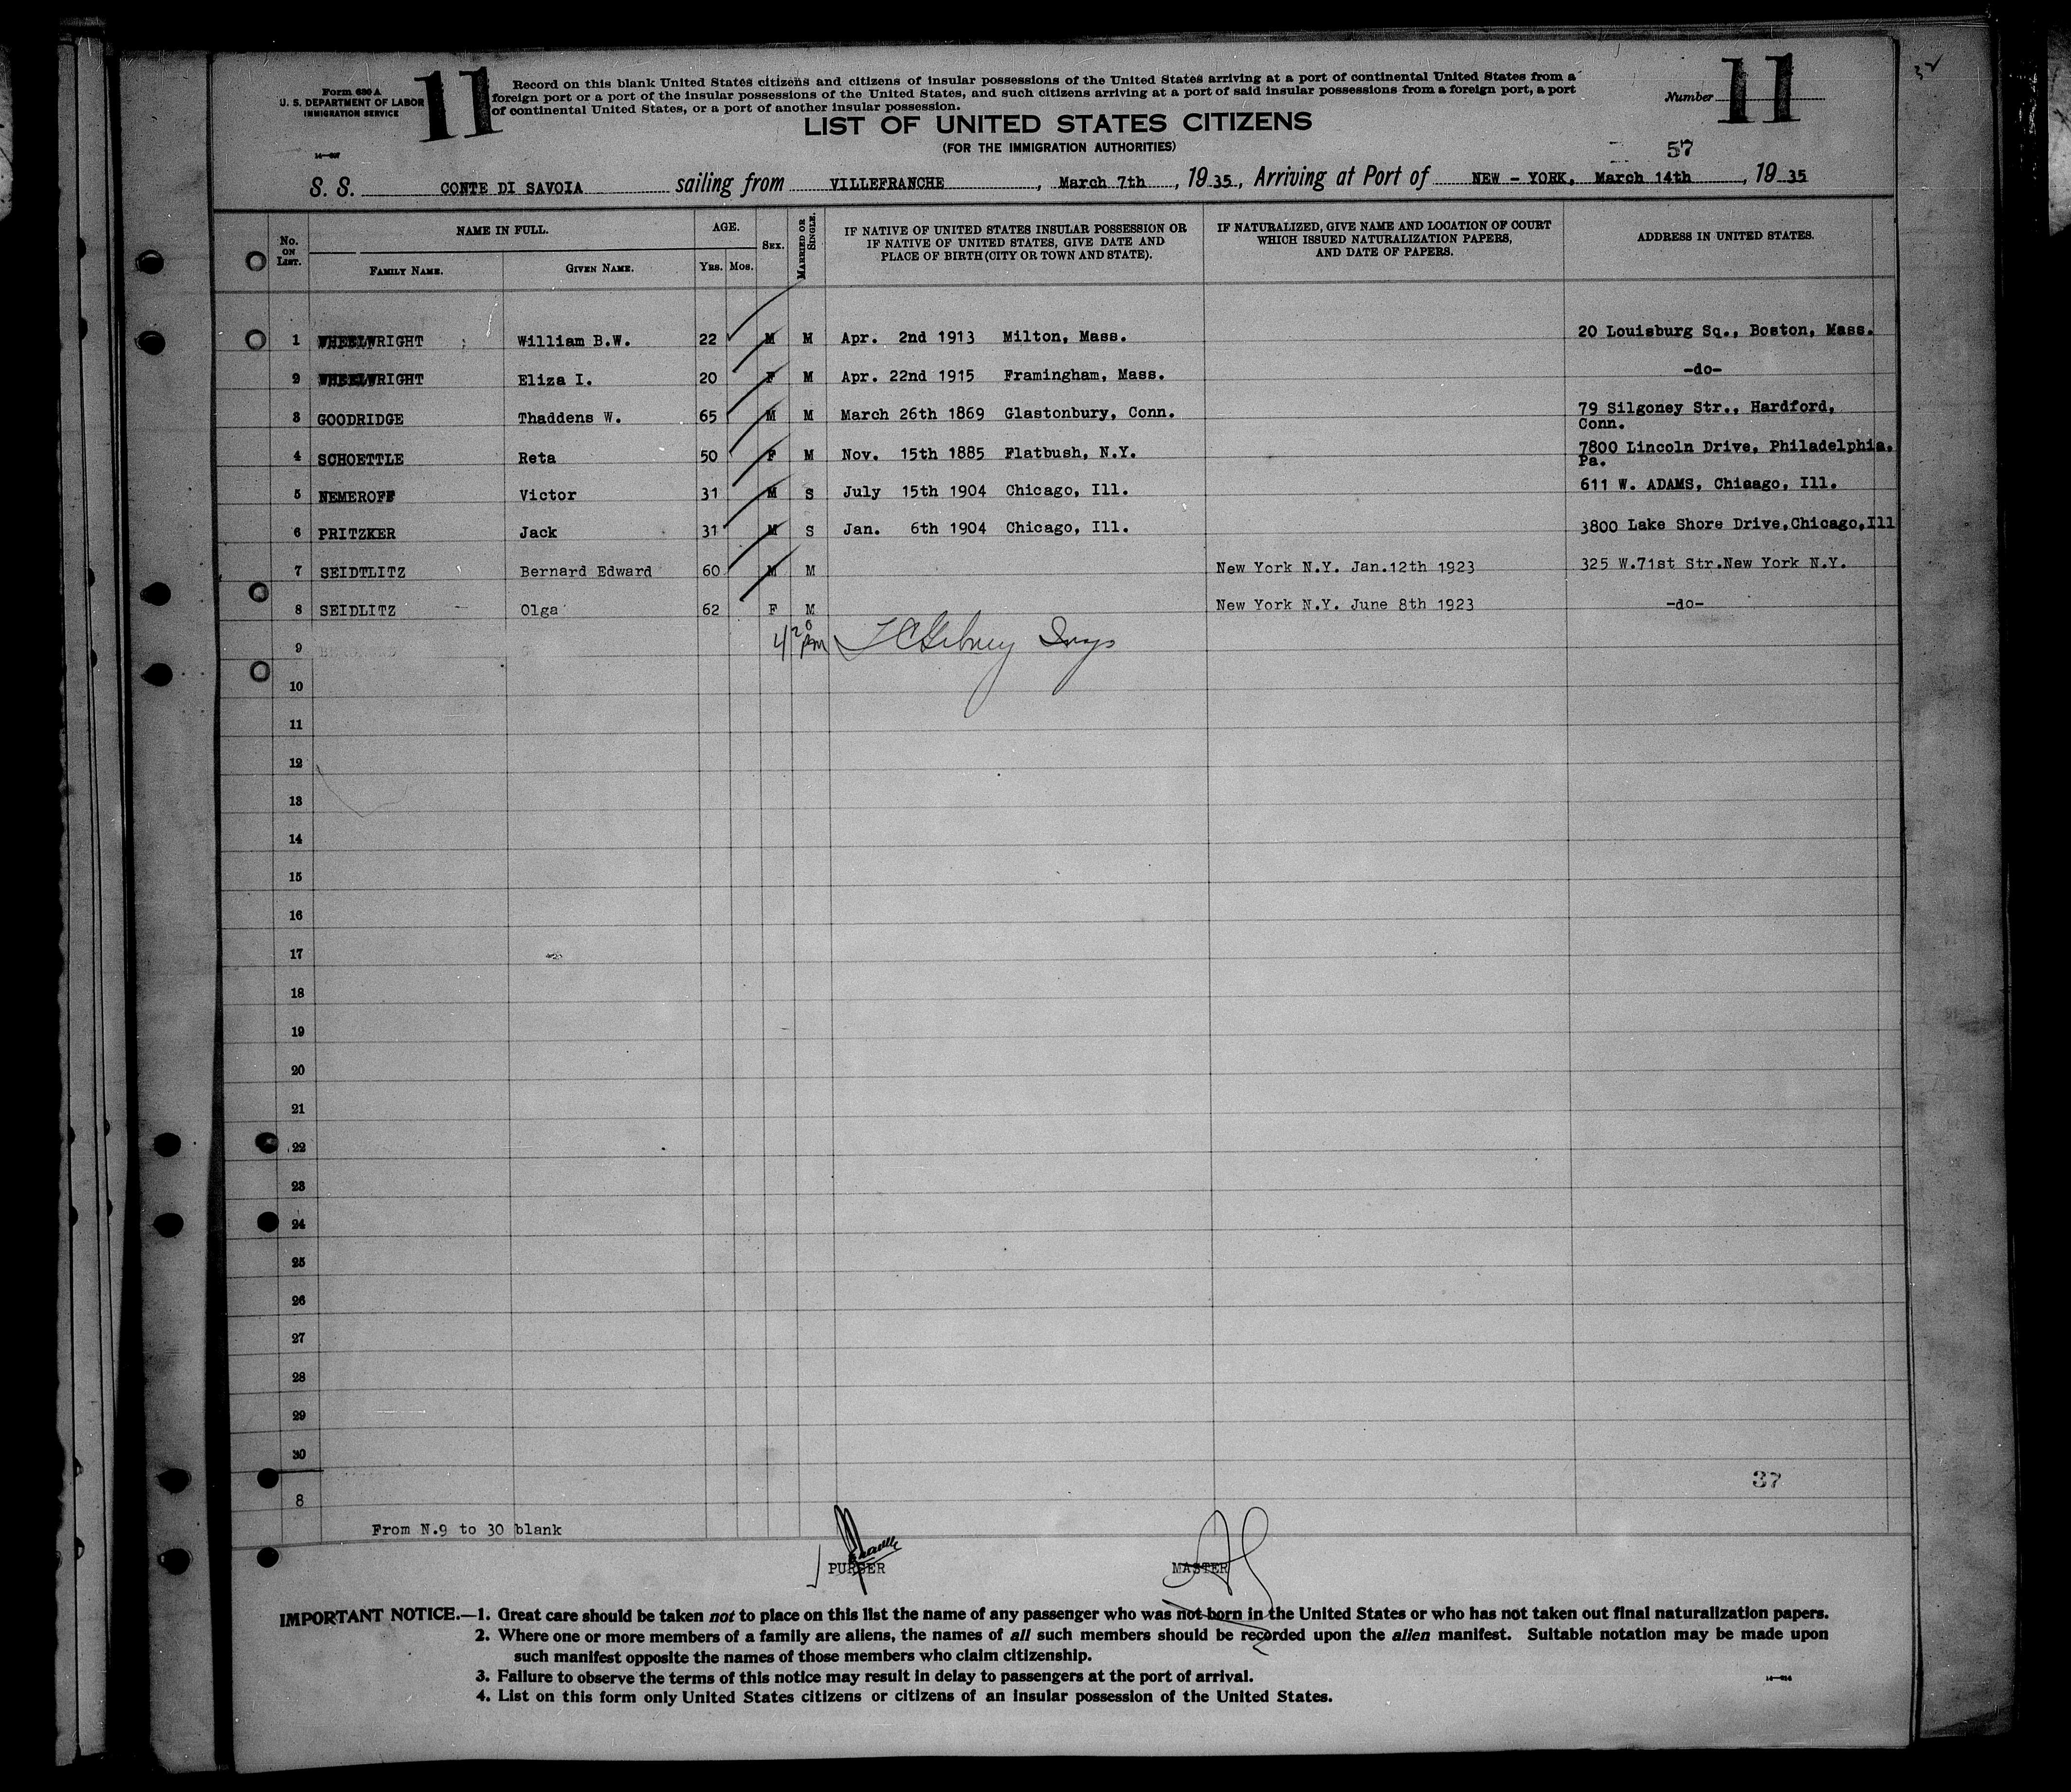 Form 630 A
U. S. DEPARTMENT OF LABOR
IMMIGRATION SERVICE
11
Record on this blank United States citizens and citizens of insular possessions of the United States arriving at a port of continental United States from a
foreign port or a port of the insular possessions of the United States, and such citizens arriving at a port of said insular possessions from a foreign port, a port
of continental United States, or a port of another insular possession.
Number 11
LIST OF UNITED STATES CITIZENS
(FOR THE IMMIGRATION AUTHORITIES)
57
S. S. CONTE DI SAVOIA sailing from VILLEFRANCHE, March 7th, 19 35, Arriving at Port of NEW - YORK, March 14th, 19 35
No. ON LIST. NAME IN FULL. FAMILY NAME. GIVEN NAME. AGE. YRS. MOS. SEX. MARRIED OR SINGLE. IF NATIVE OF UNITED STATES INSULAR POSSESSION OR IF NATIVE OF UNITED STATES, GIVE DATE AND PLACE OF BIRTH (CITY OR TOWN AND STATE). IF NATURALIZED, GIVE NAME AND LOCATION OF COURT WHICH ISSUED NATURALIZATION PAPERS, AND DATE OF PAPERS. ADDRESS IN UNITED STATES.
1 WHEELWRIGHT William B.W. 22 M M Apr. 2nd 1913 Milton, Mass. 20 Louisburg Sq., Boston, Mass.
2 WHEELWRIGHT Eliza I. 20 F M Apr. 22nd 1915 Framingham, Mass. -do-
3 GOODRIDGE Thaddens W. 65 M M March 26th 1869 Glastonbury, Conn. 79 Silgoney Str., Hardford,
Conn.
4 SCHOETTLE Reta 50 F M Nov. 15th 1885 Flatbush, N.Y. 7800 Lincoln Drive, Philadelphia,
Pa.
5 NEMEROFF Victor 31 M S July 15th 1904 Chicago, Ill. 611 W. ADAMS, Chicago, Ill.
6 PRITZKER Jack 31 M S Jan. 6th 1904 Chicago, Ill. 3800 Lake Shore Drive,Chicago,Ill
7 SEIDTLITZ Bernard Edward 60 M M New York N.Y. Jan.12th 1923 325 W.71st Str.New York N.Y.
8 SEIDLITZ Olga 62 F M New York N.Y. June 8th 1923 -do-
9 4 20 PM
10
11
12
13
14
15
16
17
18
19
20
21
22
23
24
25
26
27
28
29
30
37
8
From N.9 to 30 blank
PURSER MASTER
IMPORTANT NOTICE.—1. Great care should be taken not to place on this list the name of any passenger who was not born in the United States or who has not taken out final naturalization papers.
2. Where one or more members of a family are aliens, the names of all such members should be recorded upon the alien manifest. Suitable notation may be made upon
such manifest opposite the names of those members who claim citizenship.
3. Failure to observe the terms of this notice may result in delay to passengers at the port of arrival.
4. List on this form only United States citizens or citizens of an insular possession of the United States.